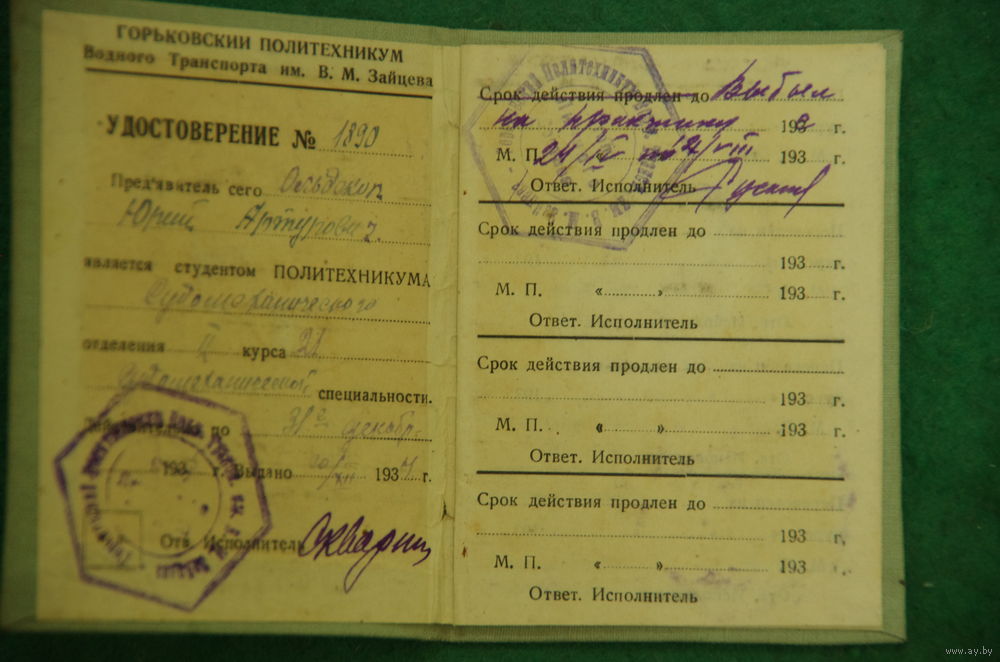 ГОРЬКОВСКИЙ ПОЛИТЕХНИКУМ
Водного Транспорта им. В. М. Зайцева
УДОСТОВЕРЕНИЕ № 1890
Пред'явитель сего
Юрий Артурович
является студентом ПОЛИТЕХНИКУМА
Судомеханического
отделения II курса 21
Судомеханической специальности.
Действительно до 31 декабр.
193 г. Выдано 1934 г.
Отв. Исполнитель
Срок действия продлен до Выбыл
на практику 193 г.
М. П. 193 г.
Ответ. Исполнитель
Срок действия продлен до
193 г.
М. П. « » 193 г.
Ответ. Исполнитель
Срок действия продлен до
193 г.
М. П. « » 193 г.
Ответ. Исполнитель
Срок действия продлен до
193 г.
М. П. « » 193 г.
Ответ. Исполнитель
www.ay.by